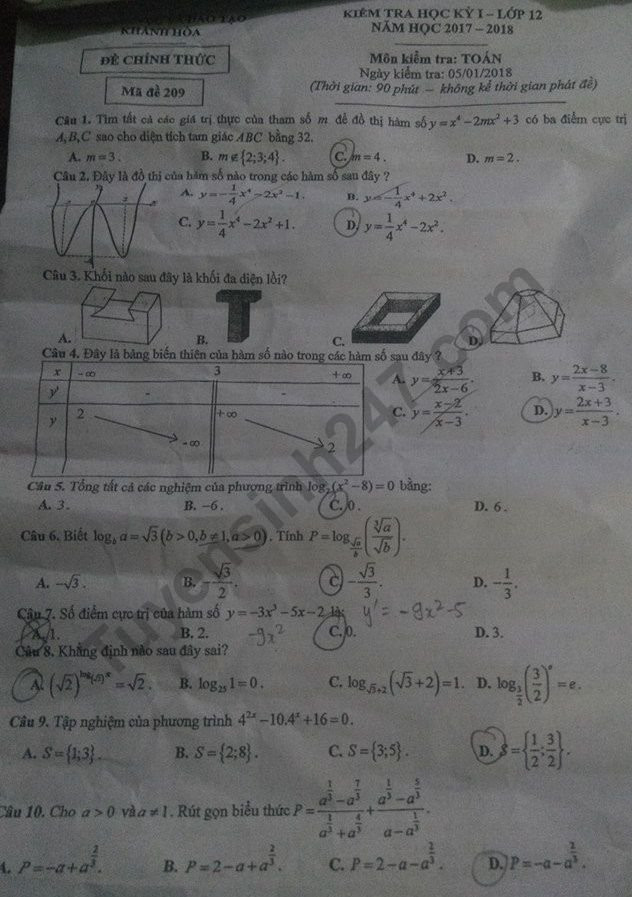 KIỂM TRA HỌC KỲ I – LỚP 12
KHÁNH HÒA
NĂM HỌC 2017 – 2018
ĐỀ CHÍNH THỨC
Môn kiểm tra: TOÁN
Ngày kiểm tra: 05/01/2018
Mã đề 209
(Thời gian: 90 phút – không kể thời gian phát đề)
Câu 1. Tìm tất cả các giá trị thực của tham số m để đồ thị hàm số y = x⁴ − 2mx² + 3 có ba điểm cực trị
A, B, C sao cho diện tích tam giác ABC bằng 32.
A. m = 3. B. m ∉ {2;3;4}. C. m = 4. D. m = 2.
Câu 2. Đây là đồ thị của hàm số nào trong các hàm số sau đây ?
A. y = −1/4 x⁴ − 2x² − 1. B. y = −1/4 x⁴ + 2x².
C. y = 1/4 x⁴ − 2x² + 1. D. y = 1/4 x⁴ − 2x².
Câu 3. Khối nào sau đây là khối đa diện lồi?
A. B. C. D.
Câu 4. Đây là bảng biến thiên của hàm số nào trong các hàm số sau đây ?
x −∞ 3 +∞
y' - -
y 2 −∞ +∞ 2
A. y = (x+3)/(2x−6). B. y = (2x−8)/(x−3).
C. y = (x−2)/(x−3). D. y = (2x+3)/(x−3).
Câu 5. Tổng tất cả các nghiệm của phương trình log (x² − 8) = 0 bằng:
A. 3. B. −6. C. 0. D. 6.
Câu 6. Biết log_b a = √3 (b > 0, b ≠ 1, a > 0). Tính P = log_(√a/b) (∛a/√b).
A. −√3. B. −√3/2. C. −√3/3. D. −1/3.
Câu 7. Số điểm cực trị của hàm số y = −3x³ − 5x − 2 là: y' = −9x² − 5
A. 1. B. 2. −9x² C. 0. D. 3.
Câu 8. Khẳng định nào sau đây sai?
A. = √2. B. log₂₅ 1 = 0. C. log_(√3+2) (√3 + 2) = 1. D. log_(3/2) (3/2)^e = e.
Câu 9. Tập nghiệm của phương trình 4^(2x) − 10.4^x + 16 = 0.
A. S = {1;3}. B. S = {2;8}. C. S = {3;5}. D. S = {1/2; 3/2}.
Câu 10. Cho a > 0 và a ≠ 1. Rút gọn biểu thức P = (a^(1/3) − a^(7/3))/(a^(1/3) + a^(4/3)) + (a^(1/3) − a^(5/3))/(a − a^(1/3)).
A. P = −a + a^(2/3). B. P = 2 − a + a^(2/3). C. P = 2 − a − a^(2/3). D. P = −a − a^(2/3).
Tuyensinh247.com